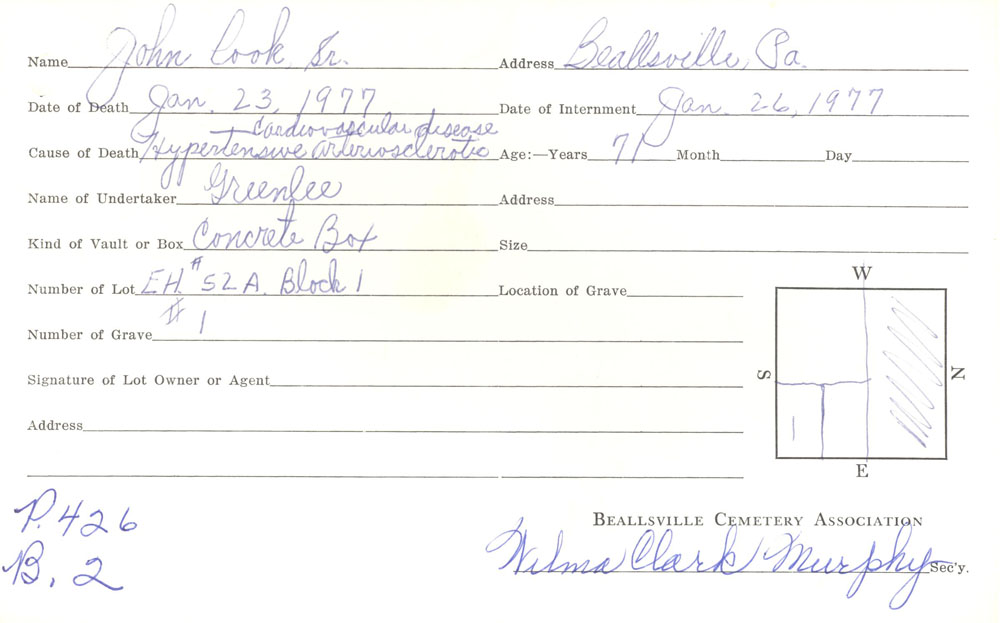 Name John Cook, Sr. Address Beallsville, Pa.
Date of Death Jan. 23, 1977 Date of Internment Jan. 26, 1977
Cardiovascular disease
Cause of Death Hypertensive arteriosclerotic Age:—Years 71 Month Day
Name of Undertaker Greenlee Address
Kind of Vault or Box Concrete Box Size
Number of Lot EH. # 52A. Block 1 Location of Grave
W
Number of Grave # 1
S N
Signature of Lot Owner or Agent
Address
1
E
P. 426
BEALLSVILLE CEMETERY ASSOCIATION
B. 2
Wilma Clark Murphy Sec'y.